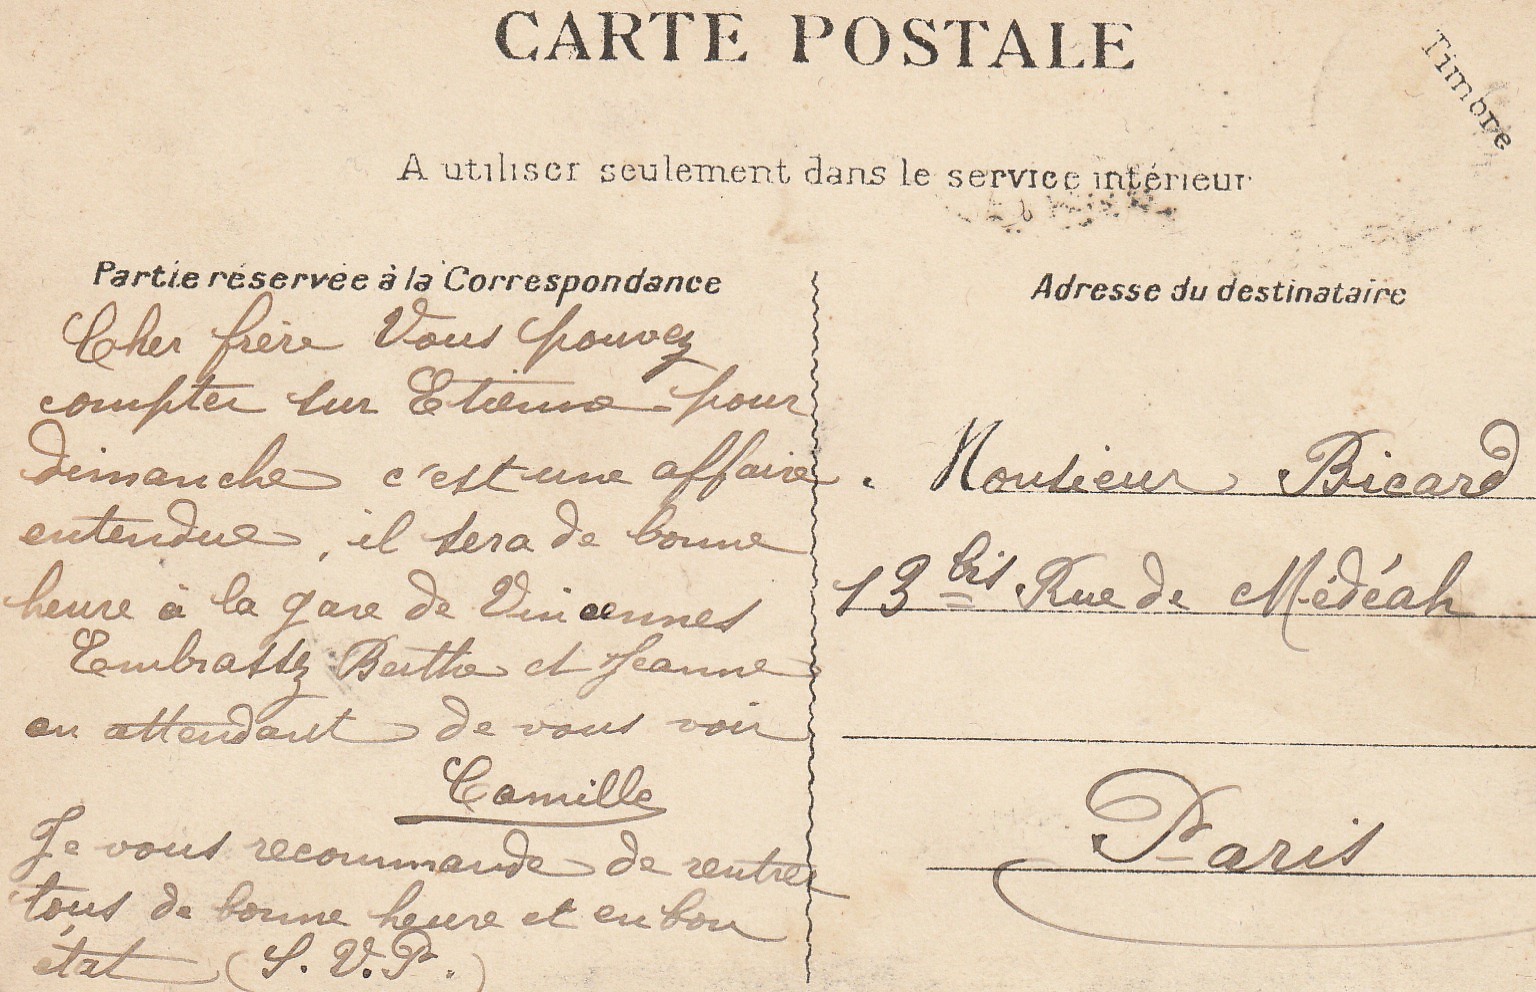 CARTE POSTALE
Timbre
A utiliser seulement dans le service intérieur
Partie réservée à la Correspondance
Cher frère Vous pouvez
compter sur Etienne pour
dimanche c'est une affaire.
entendue, il sera de bonne
heure à la gare de Vincennes
Embrassez Berthe et Jeanne
en attendant de vous voir
Camille
Je vous recommande de rentrer
tous de bonne heure et en bon
état (S. V. P.)
Adresse du destinataire
Monsieur Bicard
13 bis Rue de Médéah
Paris